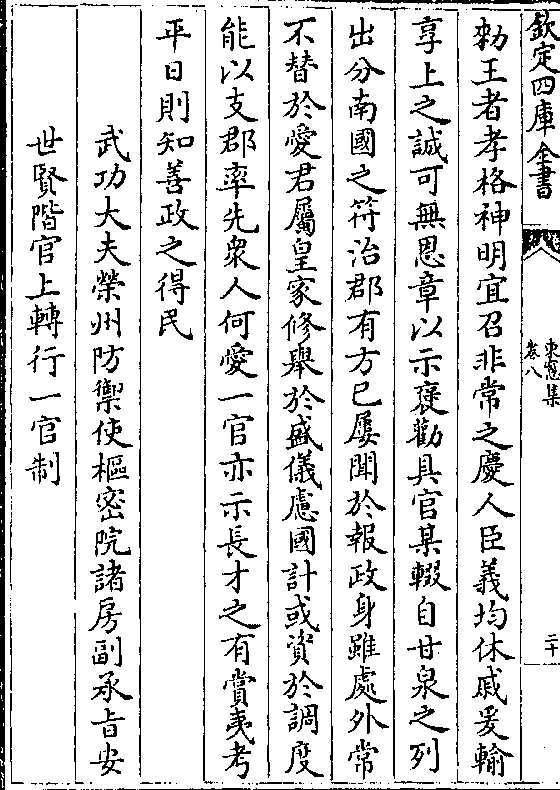 欽定四庫全書
東牕集
卷八
二十
勑王者孝格神明宜召非常之慶人臣義均休戚爰輸
享上之誠可無恩章以示襃勸具官某輟自甘泉之列
出分南國之符治郡有方已屢聞於報政身雖處外常
不替於愛君屬皇家修舉於盛儀慮國計或資於調度
能以支郡率先衆人何愛一官亦示長才之有賞夷考
平日則知善政之得民
武功大夫榮州防禦使樞密院諸房副承旨安
世賢階官上轉行一官制